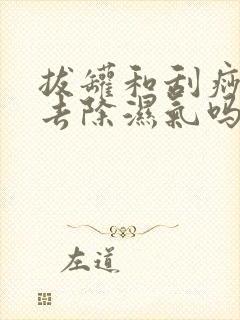 拔罐和刮痧
去除濕氣吗
左道